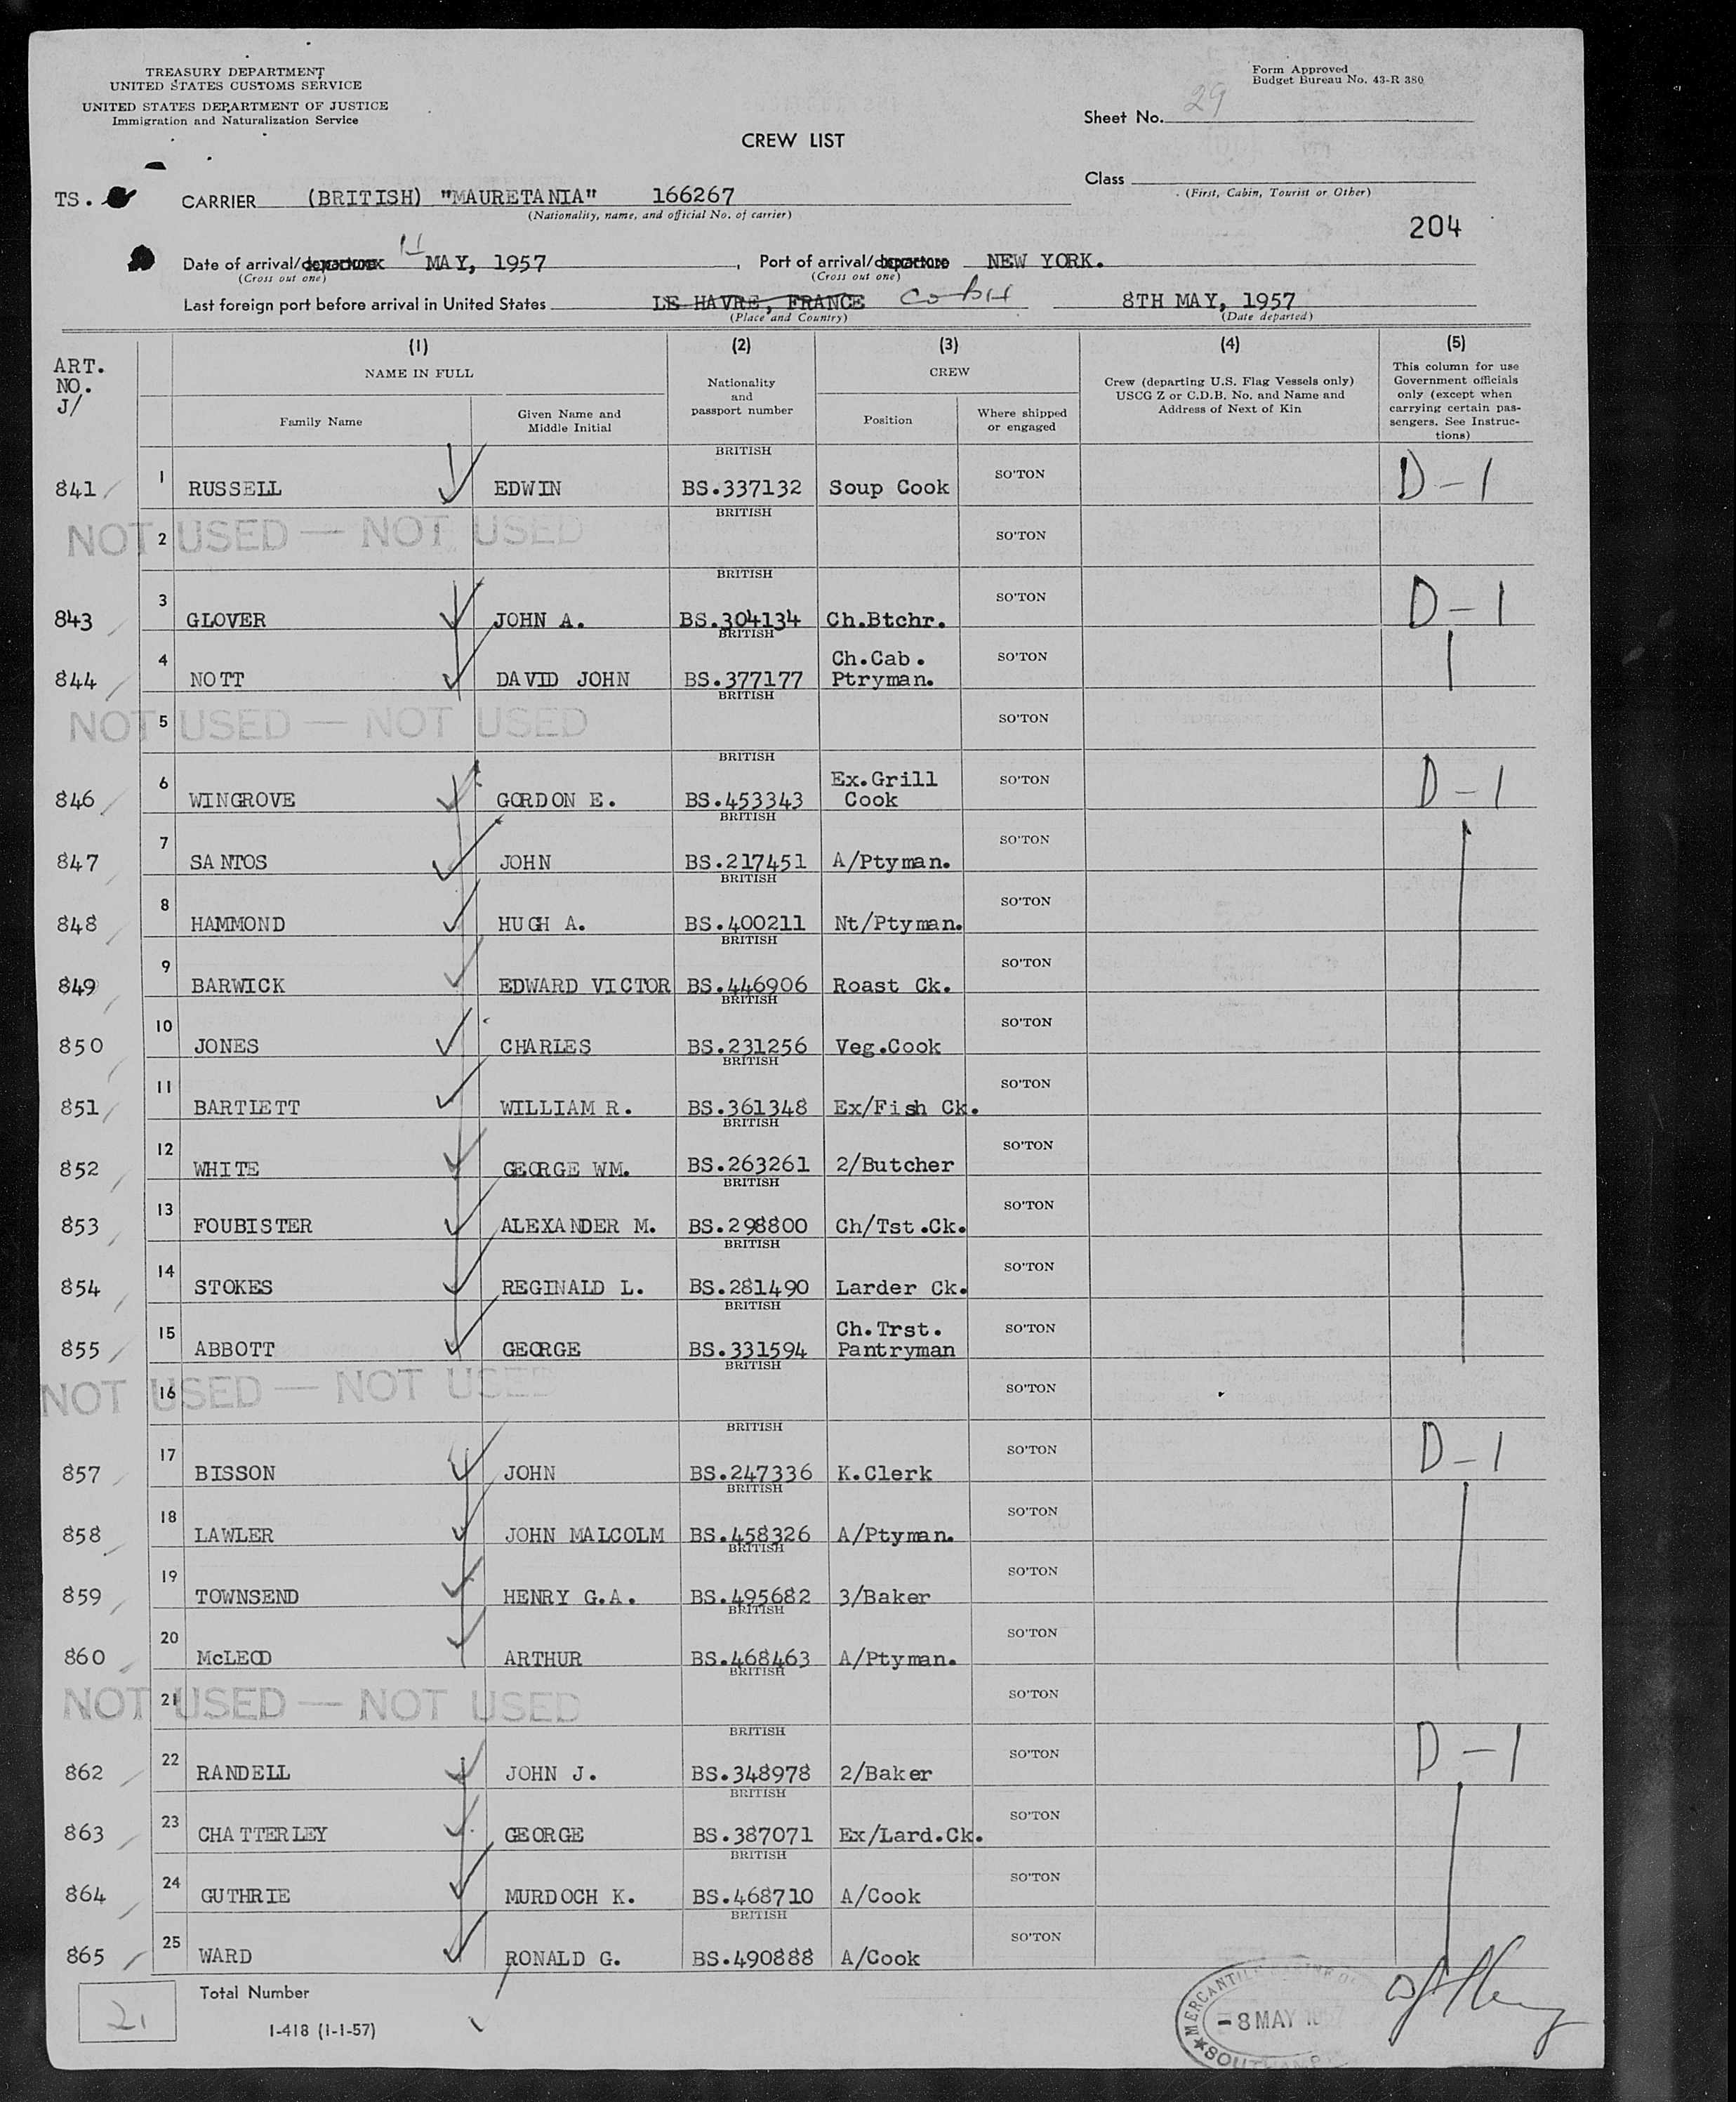 TREASURY DEPARTMENT
UNITED STATES CUSTOMS SERVICE
UNITED STATES DEPARTMENT OF JUSTICE
Immigration and Naturalization Service
Form Approved
Budget Bureau No. 43-R 380
Sheet No. 29
CREW LIST
Class
(First, Cabin, Tourist or Other)
TS. CARRIER (BRITISH) "MAURETANIA" 166267
(Nationality, name, and official No. of carrier)
204
Date of arrival/departure MAY, 1957 , Port of arrival/departure NEW YORK.
(Cross out one) (Cross out one)
Last foreign port before arrival in United States LE HAVRE, FRANCE Cobh 8TH MAY, 1957
(Place and Country) (Date departed)
ART. NO. J/
(1) (2) (3) (4) (5)
NAME IN FULL
Family Name
Given Name and Middle Initial
Nationality and passport number
CREW
Position
Where shipped or engaged
Crew (departing U.S. Flag Vessels only) USCG Z or C.D.B. No. and Name and Address of Next of Kin
This column for use Government officials only (except when carrying certain passengers. See Instructions)
841 1 RUSSELL EDWIN BRITISH BS.337132 Soup Cook SO'TON D-1
NOT USED — NOT USED 2 BRITISH SO'TON
843 3 GLOVER JOHN A. BRITISH BS.304134 Ch.Btchr. SO'TON D-1
844 4 NOTT DAVID JOHN BRITISH BS.377177 Ch.Cab. Ptryman. SO'TON
NOT USED — NOT USED 5 BRITISH SO'TON
846 6 WINGROVE GORDON E. BRITISH BS.453343 Ex.Grill Cook SO'TON D-1
847 7 SANTOS JOHN BRITISH BS.217451 A/Ptyman. SO'TON
848 8 HAMMOND HUGH A. BRITISH BS.400211 Nt/Ptyman. SO'TON
849 9 BARWICK EDWARD VICTOR BRITISH BS.446906 Roast Ck. SO'TON
850 10 JONES CHARLES BRITISH BS.231256 Veg.Cook SO'TON
851 11 BARTLETT WILLIAM R. BRITISH BS.361348 Ex/Fish Ck. SO'TON
852 12 WHITE GEORGE WM. BRITISH BS.263261 2/Butcher SO'TON
853 13 FOUBISTER ALEXANDER M. BRITISH BS.298800 Ch/Tst.Ck. SO'TON
854 14 STOKES REGINALD L. BRITISH BS.281490 Larder Ck. SO'TON
855 15 ABBOTT GEORGE BRITISH BS.331594 Ch.Trst. Pantryman SO'TON
NOT USED — NOT USED 16 BRITISH SO'TON
857 17 BISSON JOHN BRITISH BS.247336 K.Clerk SO'TON D-1
858 18 LAWLER JOHN MALCOLM BRITISH BS.458326 A/Ptyman. SO'TON
859 19 TOWNSEND HENRY G.A. BRITISH BS.495682 3/Baker SO'TON
860 20 McLEOD ARTHUR BRITISH BS.468463 A/Ptyman. SO'TON
NOT USED — NOT USED 21 BRITISH SO'TON
862 22 RANDELL JOHN J. BRITISH BS.348978 2/Baker SO'TON D-1
863 23 CHATTERLEY GEORGE BRITISH BS.387071 Ex/Lard.Ck. SO'TON
864 24 GUTHRIE MURDOCH K. BRITISH BS.468710 A/Cook SO'TON
865 25 WARD RONALD G. BRITISH BS.490888 A/Cook SO'TON
21 Total Number
I-418 (1-1-57)
MERCANTILE MARINE
-8 MAY 1957